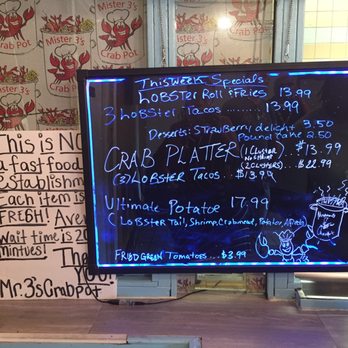 Mister 3's
Crab Pot
Mister 3's
Crab Pot
Mister 3's
Crab Pot
This is NO
a fast food
establishmen
Each item is
FRESH! Aver
wait time is 20
mintues!
The
You!
Mr. 3's Crab pot
This week Specials
LOBSTER Roll & FRIES 13.99
3 LOBSTER Tacos ........ 13.99
Desserts: Strawberry delight 3.50
Pound Cake 2.50
CRAB PLATTER (1 Cluster $13.99
(2 Clusters) $22.99
(3) LOBSTER Tacos... $13.99
Ultimate Potatoe 17.99
(LOBSTER Tail, Shrimp, Crabmeat, Potatoe
FRIED GREEN Tomatoes...$3.99